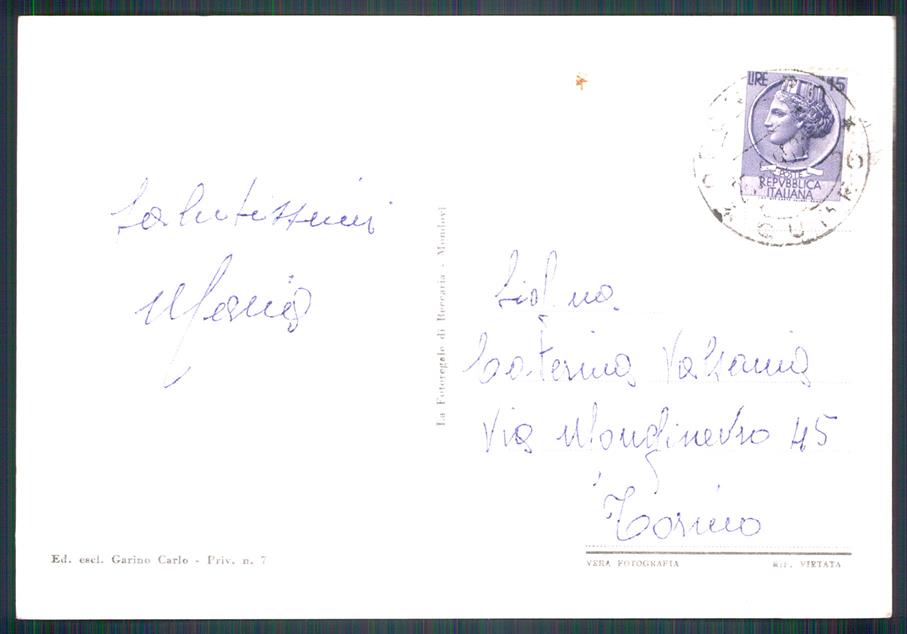 Salutissimi
Maria
La Fotoregale di Beccaria - Mondovì
Ed. escl. Garino Carlo - Priv. n. 7
LIRE 15
POSTE
REPVBBLICA
ITALIANA
Sig.na
Caterina Valsania
Via Monginevro 45
Torino
VERA FOTOGRAFIA
RIP. VIETATA